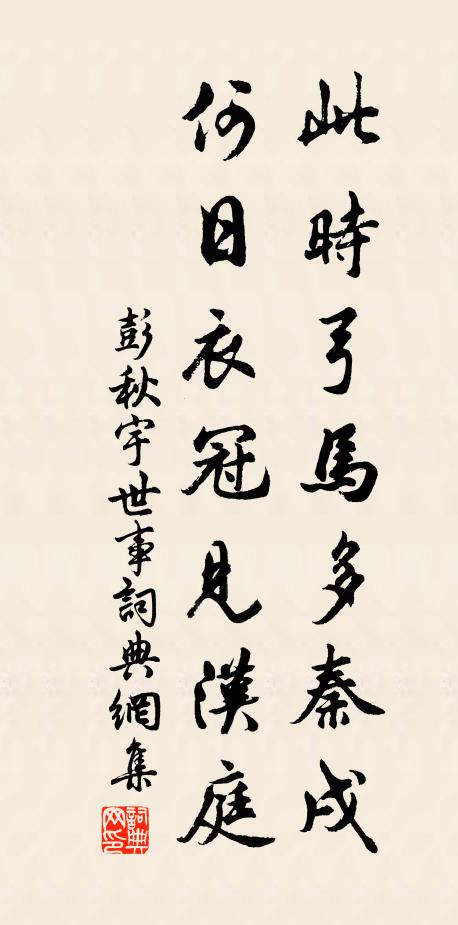 此時弓馬多秦戍
何日衣冠見漢庭
彭秋宇世事詞典網集
詞典網印